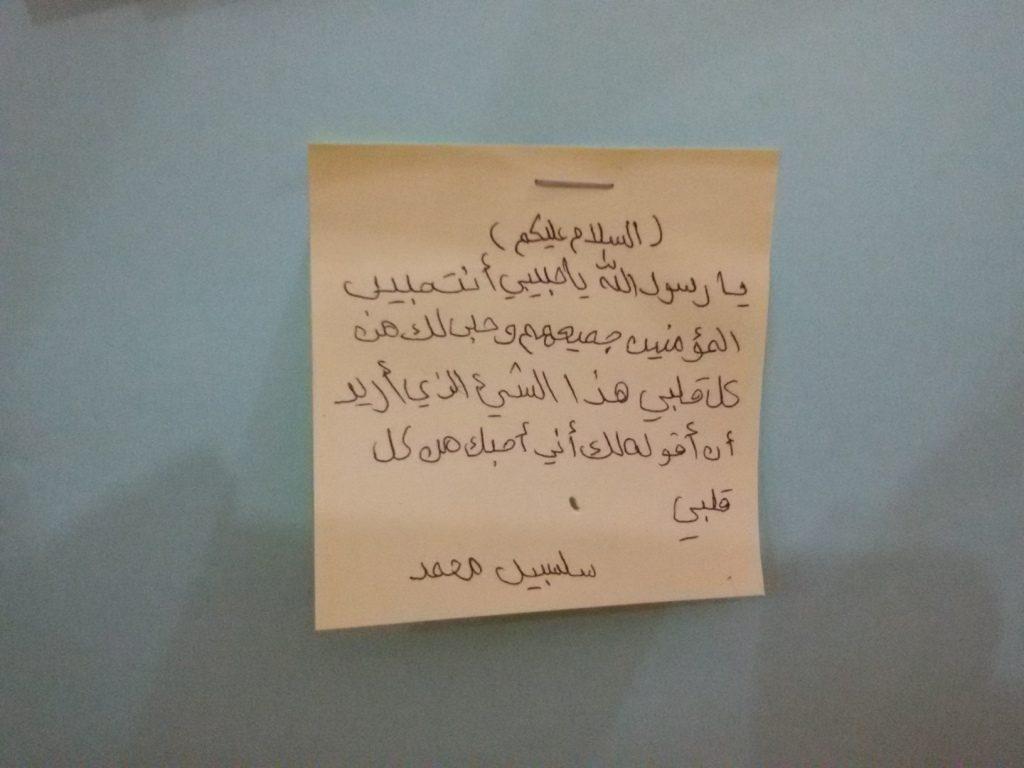 (السلام عليكم)
يا رسول الله يا حبيبي أنت حبيب
المؤمنين جميعهم وحبي لك من
كل قلبي هذا الشيئ الذي أريد
أن أقوله لك أني أحبك من كل
قلبي
سلسبيل محمد